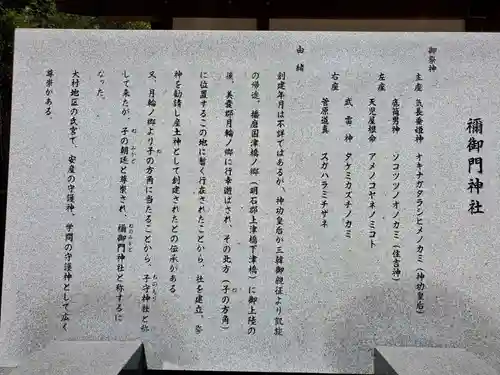 禰御門神社
御祭神
主座 気長帯姫神 オキナガタラシヒメノカミ（神功皇后）
底筒男神 ソコツツノオノカミ（住吉神）
左座 天児屋根命 アメノコヤネノミコト
武雷神 タケミカズチノカミ
右座 菅原道真 スガハラミチザネ
由緒
創建年月は不詳ではあるが、神功皇后が三韓御親征より凱旋
の帰途、播磨国津橋ノ郷（明石郡上津橋下津橋）に御上陸の
後、美嚢郡月輪ノ郷に行幸遊ばされ、その北方（子の方角）
に位置するこの地に暫く行在されたことから、社を建立、祭
神を勧請し産土神として創建されたとの伝承がある。
又、月輪ノ郷より子の方角に当たることから、子守神社と称
して来たが、子の朝廷と尊崇され、禰御門神社と称するに
なった。
大村地区の氏宮で、安産の守護神、学問の守護神として広く
尊崇がある。